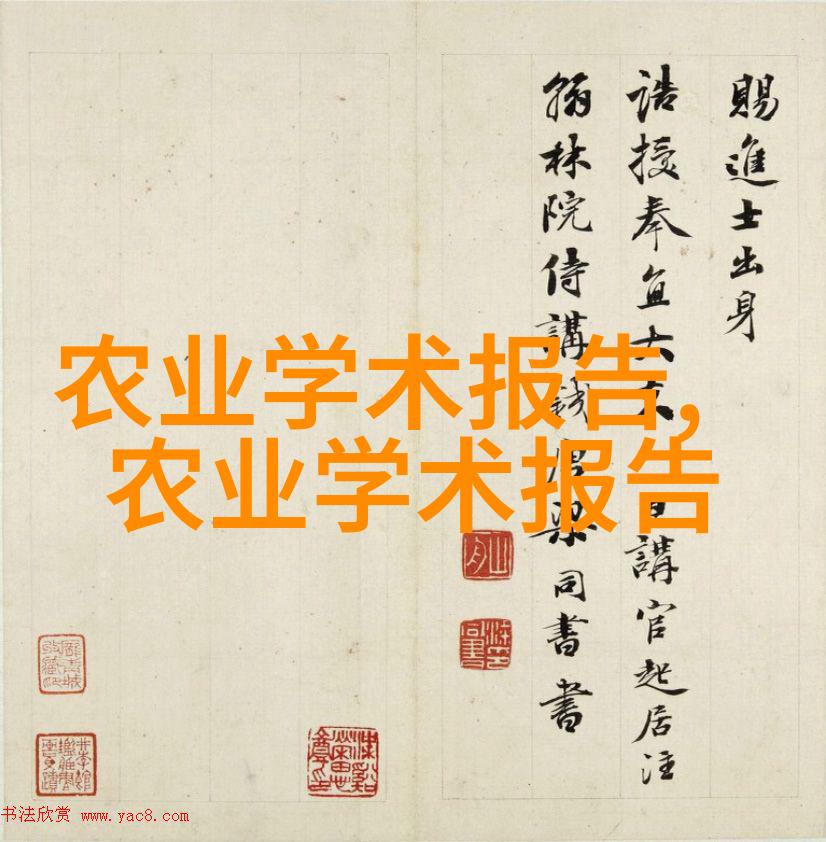 賜進士出身
誥授奉直大夫日講官起居注
翰林院侍講錢唐梁同書書
农业学术报告,
农业学术报告
书法欣赏 www.yac8.com